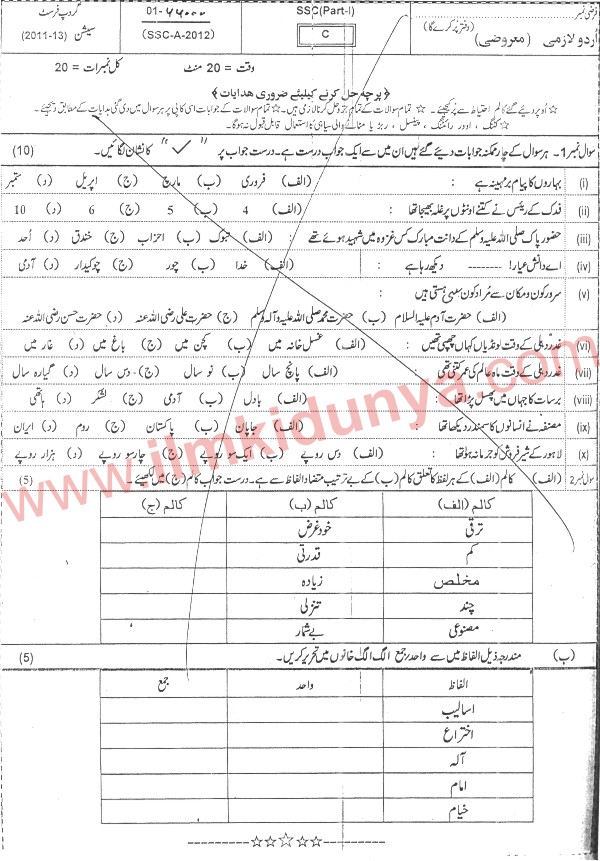 فرضی نمبر
اُردو لازمی (معروضی) (دفتر پُر کرے گا)
SSC(Part-I)
C
01-44000
(SSC-A-2012)
گروپ فرسٹ
سیشن (2011-13)
وقت = 20 منٹ کل نمبرات = 20
﴿پرچہ حل کرنے کیلئے ضروری ہدایات﴾
☆ اُوپر دیئے گئے کالم احتیاط سے پُر کیجئے۔ ☆ تمام سوالات کے تمام جزو حل کرنا لازمی ہیں۔ ☆ تمام سوالات کے جوابات اسی کاپی پر ہر سوال میں دی گئی ہدایات کے مطابق دیجئے۔
☆ کٹنگ، اوور رائٹنگ، پینسل، ربڑ یا مٹانے والی سیاہی کا استعمال قابل قبول نہ ہوگا۔
سوال نمبر 1۔ ہر سوال کے چار ممکنہ جوابات دیئے گئے ہیں ان میں سے ایک جواب درست ہے۔ درست جواب پر " ✓ " کا نشان لگائیں۔ (10)
(i) بہاروں کا پیام بر مہینہ ہے : (الف) فروری (ب) مارچ (ج) اپریل (د) ستمبر
(ii) فدک کے رئیس نے کتنے اونٹوں پر غلہ بھیجا تھا : (الف) 4 (ب) 5 (ج) 6 (د) 10
(iii) حضور پاک صلی اللہ علیہ وسلم کے دانت مبارک کس غزوہ میں شہید ہوئے تھے : (الف) تبوک (ب) احزاب (ج) خندق (د) اُحد
(iv) اے دانش عیار! -------- دیکھ رہا ہے : (الف) خدا (ب) چور (ج) چوکیدار (د) آدمی
(v) سرور کون و مکاں سے مُراد کون سی ہستی ہیں :
(الف) حضرت آدم علیہ السلام (ب) حضرت محمد صلی اللہ علیہ وآلہ وسلم (ج) حضرت علی رضی اللہ عنہ (د) حضرت حسن رضی اللہ عنہ
(vi) غدر دہلی کے وقت لونڈیاں کہاں چھپی تھیں : (الف) غسل خانہ میں (ب) کچن میں (ج) باغ میں (د) غار میں
(vii) غدر دہلی کے وقت ماہ عالم کی عمر کتنی تھی : (الف) پانچ سال (ب) نو سال (ج) دس سال (د) گیارہ سال
(viii) برسات کا جہاں میں پھسل پڑا تھا : (الف) بادل (ب) آدمی (ج) لشکر (د) ہاتھی
(ix) مصنفہ نے انسانوں کا سمندر دیکھا تھا : (الف) جاپان (ب) پاکستان (ج) روم (د) ایران
(x) لاہور کے شیر فروش کو جرمانہ ہوا تھا : (الف) دس روپے (ب) ایک سو روپے (ج) چار سو روپے (د) ہزار روپے
سوال نمبر 2 (الف) کالم (الف) کے ہر لفظ کا تعلق کالم (ب) کے بے ترتیب متضاد الفاظ سے ہے۔ درست جواب کالم (ج) میں لکھیئے۔ (5)
کالم (الف) کالم (ب) کالم (ج)
ترقی خود غرض
کم قدرتی
مخلص زیادہ
چند تنزلی
مصنوعی بے شمار
(ب) مندرجہ ذیل الفاظ میں سے واحد/جمع الگ الگ خانوں میں تحریر کریں۔ (5)
الفاظ واحد جمع
اسالیب
اختراع
آلہ
امام
خیام
---------☆☆☆☆☆---------
www.ilmkidunya.com